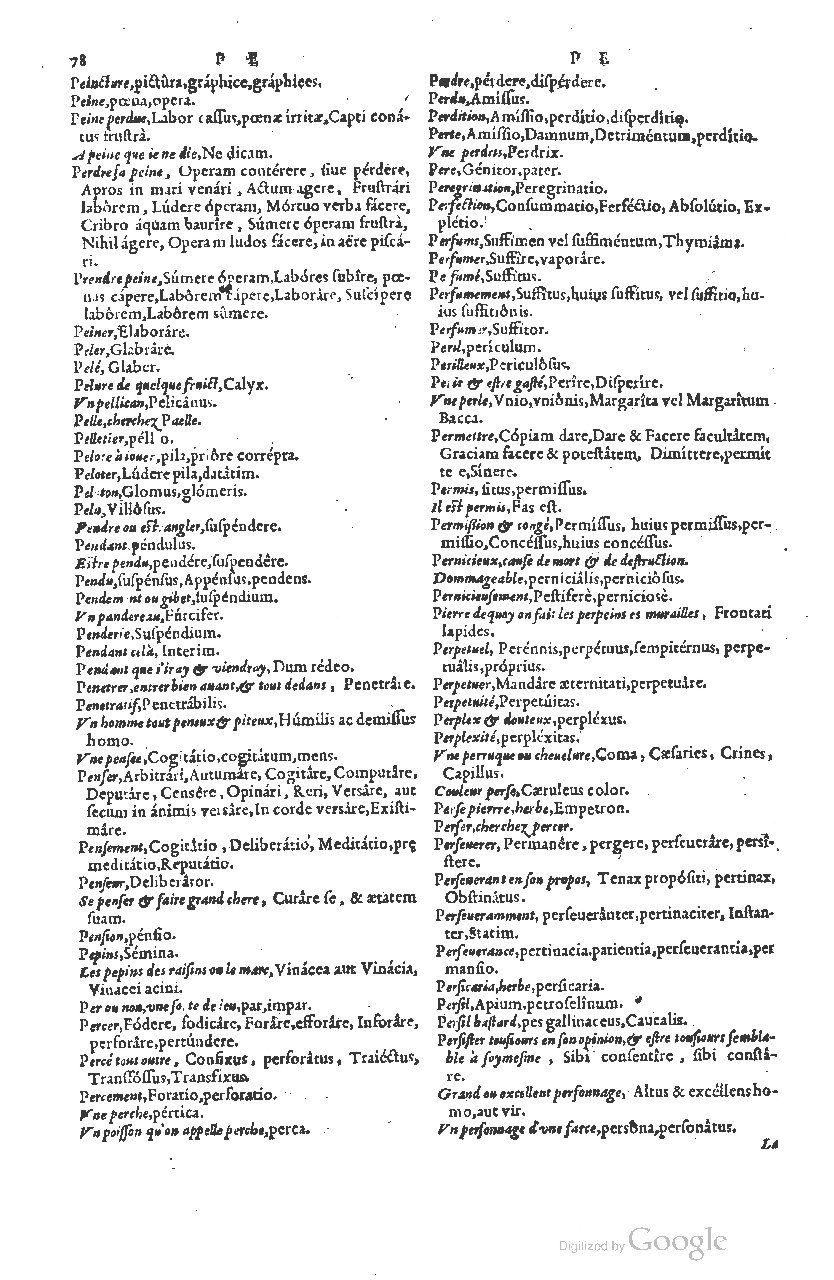 78 P E
Peincture,pictûra,gráphice,gráphices.
Peine,pœna,opera.
Peine perdue,Labor cassus,pœnæ irritæ,Capti coná-
tus frustrà.
A peine que ie ne die,Ne dicam.
Perdre sa peine, Operam contérere, siue pérdere,
Apros in mari venári, Actum agere, Frustrári
labôrem, Lúdere óperam, Mórtuo verba fácere,
Cribro áquam haurîre, Súmere óperam frustrà,
Nihil ágere, Operam ludos fácere, in aëre piscá-
ri.
Prendre peine,Súmere óperam,Labóres subîre, pœ-
nas cápere,Labôrem cápere,Laborâre, Suscípere
labôrem,Labôrem sûmere.
Peiner,Elaboráre.
Peler,Glabrâre.
Pelé, Glaber.
Pelure de quelque fruict,Calyx.
Vn pellican,Pelicânus.
Pelle,cherchez Paelle.
Pelletier,péll o.
Pelote à iouer,pila,priôre corrépta.
Peloter,Lúdere pila,datâtim.
Peloton,Glomus,glómeris.
Pelu,Villôsus.
Pendre ou estrangler,suspéndere.
Pendant,péndulus.
Estre pendu,pendére,suspendêre.
Pendu,suspénsus,Appénsus,pendens.
Pendement ou gibet,suspéndium.
Vn pandereau,Fúrcifer.
Penderie,Suspéndium.
Pendant celà, Interim.
Pendant que i'iray & viendray,Dum rédeo.
Penetrer,entrer bien auant,& tout dedans, Penetrâre.
Penetratif,Penetrábilis.
Vn homme tout peneux & piteux,Húmilis ac demissus
homo.
Vne pensee,Cogitátio,cogitátum,mens.
Penser,Arbitrári,Autumâre, Cogitâre,Computâre,
Deputâre, Censêre, Opinári, Reri, Versâre, aut
secum in ánimis versâre,In corde versâre,Existi-
mâre.
Pensement,Cogitâtio, Deliberátio, Meditátio,pre
meditátio,Reputátio.
Penseur,Deliberâtor.
Se penser & faire grand chere, Curâre se, & ætatem
suam.
Pension,pénsio.
Pepins,Sémina.
Les pepins des raisins ou le marc,Vinácea aut Vinácia,
Vinacei acini.
Per ou non,vne sorte de ieu,par,impar.
Percer,Fódere, fodicâre, Forâre,efforâre, Inforâre,
perforâre,pertúndere.
Percé tout outre, Confixus, perforátus, Traiéctus,
Transfóssus,Transfixus.
Percement,Foratio,perforatio.
Vne perche,pértica.
Vn poisson qu'on appelle perche,perca.
P E
Perdre,pérdere,dispérdere.
Perdu,Amissus.
Perdition,Amíssio,perdítio,disperdítio.
Perte,Amíssio,Damnum,Detriméntum,perdítio.
Vne perdris,Perdrix.
Pere,Génitor,pater.
Peregrination,Peregrinatio.
Perfection,Consummatio,Perféctio, Absolútio, Ex-
plétio.
Perfums,Suffimen vel suffiméntum,Thymiàma.
Perfumer,Suffîre,vaporâre.
Perfumé,Suffîtus.
Perfumement,Suffîtus,huius suffîtus, vel suffitio,hu-
ius suffitiônis.
Perfumeur,Suffitor.
Peril,perículum.
Perilleux,Periculôsus.
Perir & estre gasté,Perîre,Disperîre.
Vne perle,Vnio,vniônis,Margaríta vel Margarîtum.
Bacca.
Permettre,Cópiam dare,Dare & Facere facultâtem,
Graciam facere & potestâtem, Dimíttere,permít
te e,Sínere.
Permis, situs,permissus.
Il est permis,Fas est.
Permission & congé,Permíssus, huius permissus,per-
missio,Concéssus,huius concéssus.
Pernicieux,cause de mort & de destruction.
Dommageable,perniciâlis,perniciôsus.
Pernicieusement,Pestiferè,perniciosè.
Pierre dequoy on fait les perpeins es murailles, Frontati
lapides.
Perpetuel, Perénnis,perpétuus,sempitérnus, perpe-
tuâlis,próprius.
Perpetuer,Mandâre æternitati,perpetuâre.
Perpetuité,Perpetúitas.
Perplex & douteux,perpléxus.
Perplexité,perpléxitas.
Vne perruque ou cheuelure,Coma, Cæsaries, Crines,
Capillus.
Couleur perse,Cæruleus color.
Perse pierrre,herbe,Empetron.
Perser,cherchez percer.
Perseuerer, Permanêre, pergere, perseuerâre, persi-
stere.
Perseuerant en son propos, Tenax propósiti, pertinax,
Obstinátus.
Perseueramment, perseuerânter,pertinaciter, Instan-
ter,Statim.
Perseuerance,pertinacia,patientia,perseuerantia,per
mansio.
Persicaria,herbe,persicaria.
Persil,Apium,petroselinum.
Persil bastard,pes gallinaceus,Caucalis.
Persister tousiours en son opinion,& estre tousiours sembla-
ble à soymesme, Sibi consentîre, sibi constâ-
re.
Grand ou excellent personnage, Altus & excéllens ho-
mo,aut vir.
Vn personnage d'vne farce,persôna,personâtus.
La
Digitized by Google